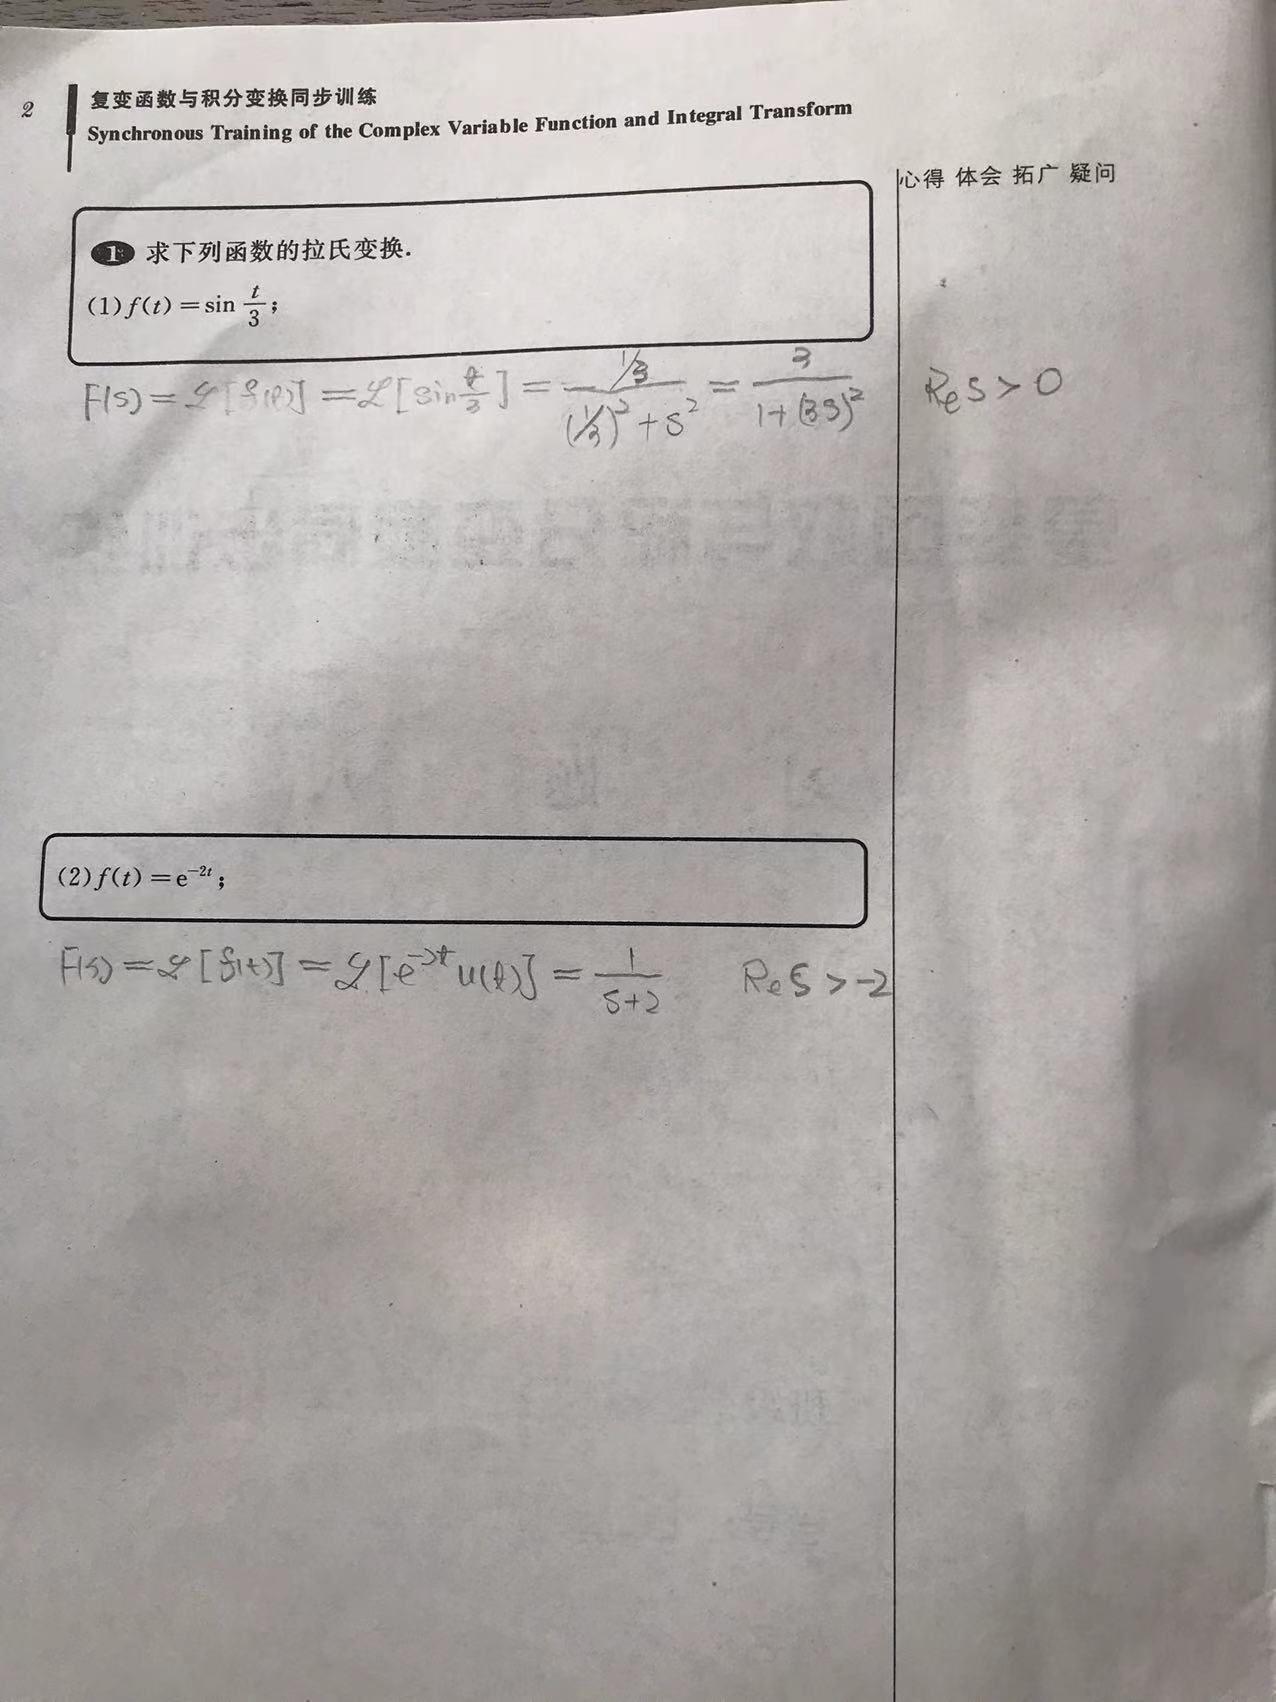 2
复变函数与积分变换同步训练
Synchronous Training of the Complex Variable Function and Integral Transform
心得 体会 拓广 疑问
1 求下列函数的拉氏变换.
(1) f(t) = sin t/3 ;
F(s) = ℒ[f(t)] = ℒ[sin t/3] = (1/3)/((1/3)² + s²) = 3/(1+(3s)²) Re s > 0
(2) f(t) = e^{-2t} ;
F(s) = ℒ[f(t)] = ℒ[e^{-2t} u(t)] = 1/(s+2) Re s > -2